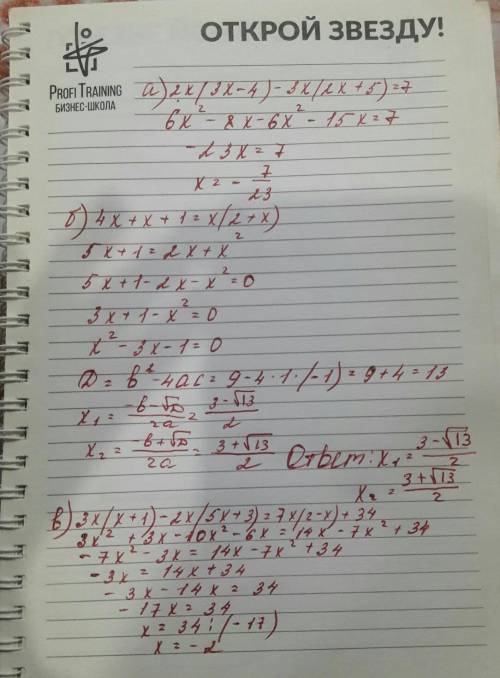 ОТКРОЙ ЗВЕЗДУ!
PROFI TRAINING
БИЗНЕС-ШКОЛА
а) 2x(3x-4)-3x(2x+5)=7
6x²-8x-6x²-15x=7
-23x=7
x=-7/23
б) 4x+x+1=x(2+x)
5x+1=2x+x²
5x+1-2x-x²=0
3x+1-x²=0
x²-3x-1=0
D=b²-4ac=9-4·1·(-1)=9+4=13
x₁=(-b-√D)/2a=(3-√13)/2
x₂=(-b+√D)/2a=(3+√13)/2
Ответ: x₁=(3-√13)/2
x₂=(3+√13)/2
в) 3x(x+1)-2x(5x+3)=7x(2-x)+34
3x²+3x-10x²-6x=14x-7x²+34
-7x²-3x=14x-7x²+34
-3x=14x+34
-3x-14x=34
-17x=34
x=34:(-17)
x=-2